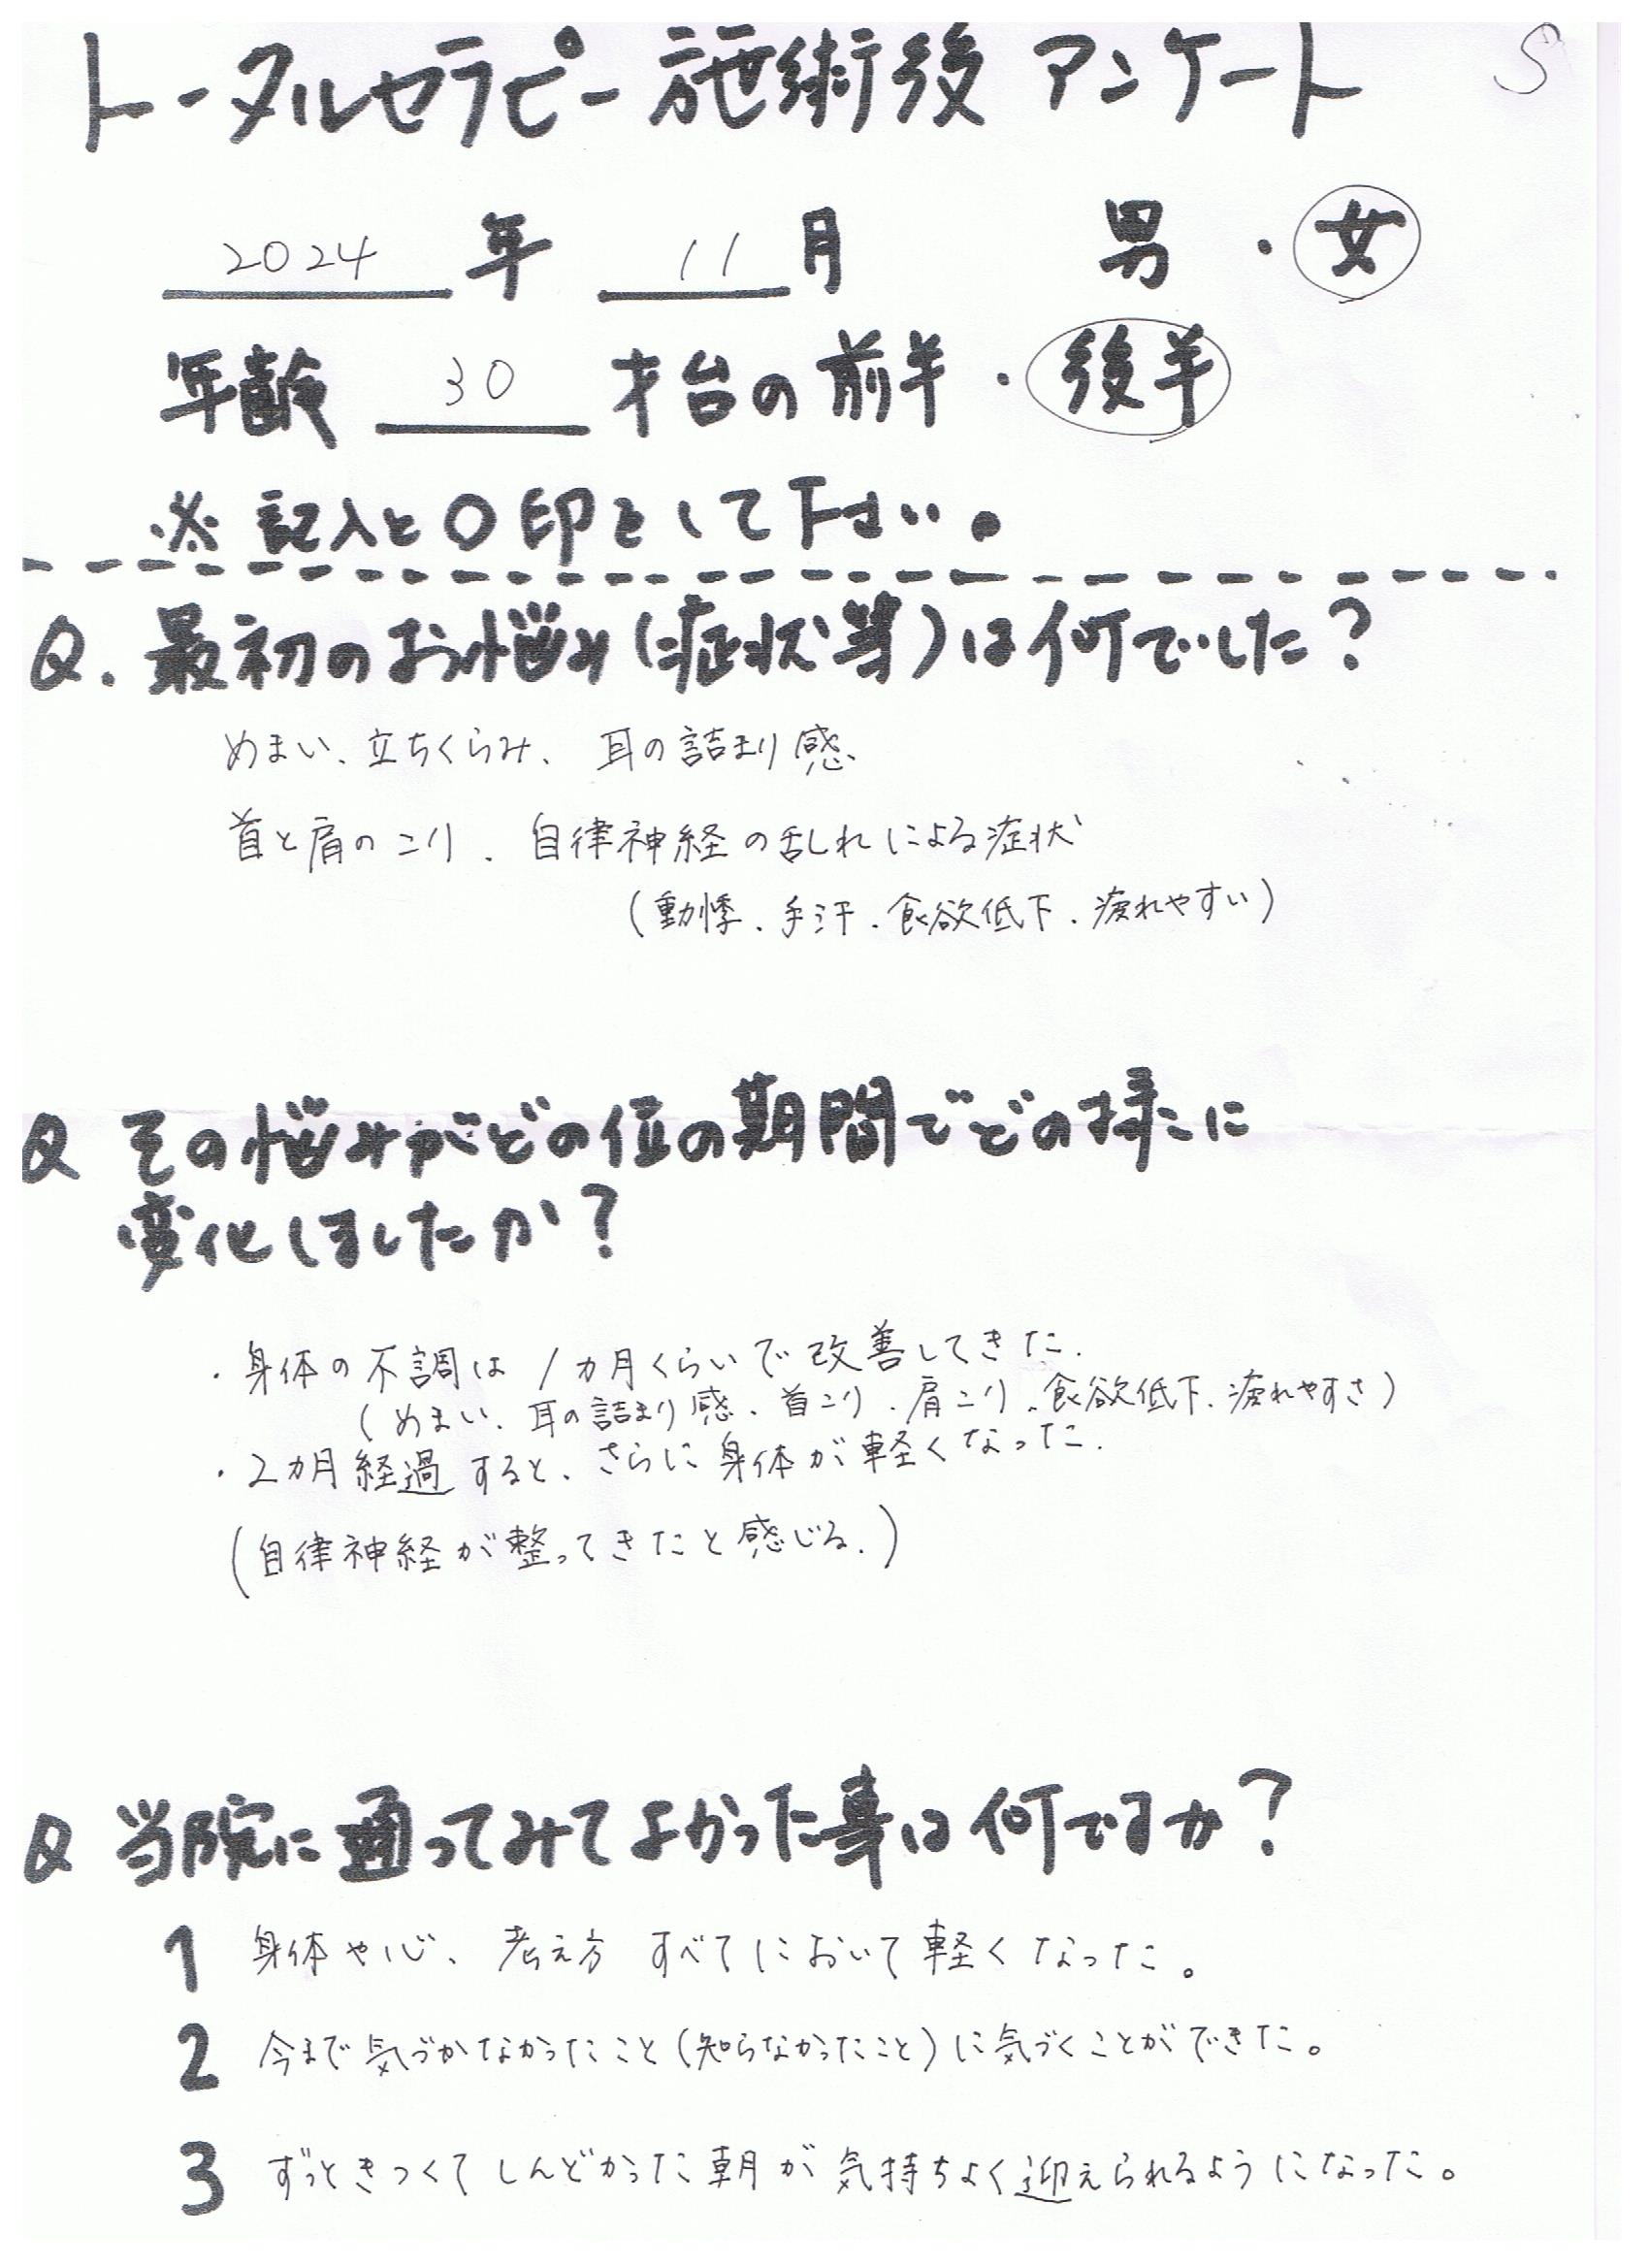 トータルセラピー施術後 アンケート S
2024 年 11 月 男 ・ 女
年齢 30 才台の前半 ・ 後半
※ 記入と〇印をして下さい。
Q. 最初のお悩み(症状等)は何でした?
めまい、立ちくらみ、耳の詰まり感、
首と肩のこり、自律神経の乱れによる症状
(動悸、手汗、食欲低下、疲れやすい)
Q その悩みがどの位の期間でどの様に
変化しましたか?
・身体の不調は1ヵ月くらいで改善してきた.
(めまい、耳の詰まり感、首こり、肩こり、食欲低下、疲れやすさ)
・2ヵ月経過すると、さらに身体が軽くなった.
(自律神経が整ってきたと感じる.)
Q 当院に通ってみてよかった事は何ですか?
1 身体や心、考え方 すべてにおいて軽くなった。
2 今まで気づかなかったこと(知らなかったこと)に気づくことができた。
3 ずっときつくてしんどかった朝が気持ちよく迎えられるようになった。